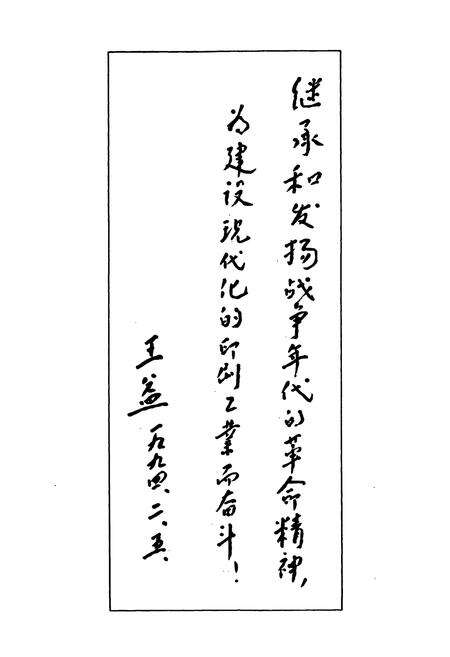 继承和发扬战争年代的革命精神，
为建设现代化的印刷工業而奋斗！
王益 一九九四、二、五、